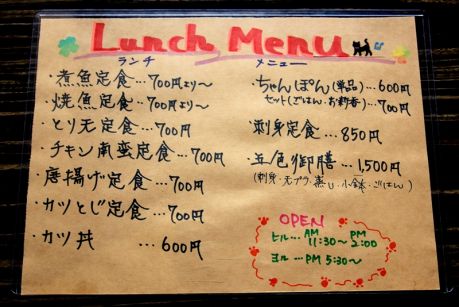 Lunch Menu
ランチ メニュー
煮魚定食…700円より〜
焼魚定食…700円より〜
とり天定食…700円
チキン南蛮定食…700円
唐揚げ定食…700円
カツとじ定食…700円
カツ丼…600円
ちゃんぽん(単品)…600円
セット(ごはん・お新香)…700円
刺身定食…850円
五色御膳…1,500円
(刺身・天プラ・蒸し・小鉢・ごはん)
OPEN
ヒル…AM 11:30〜PM 2:00
ヨル…PM 5:30〜